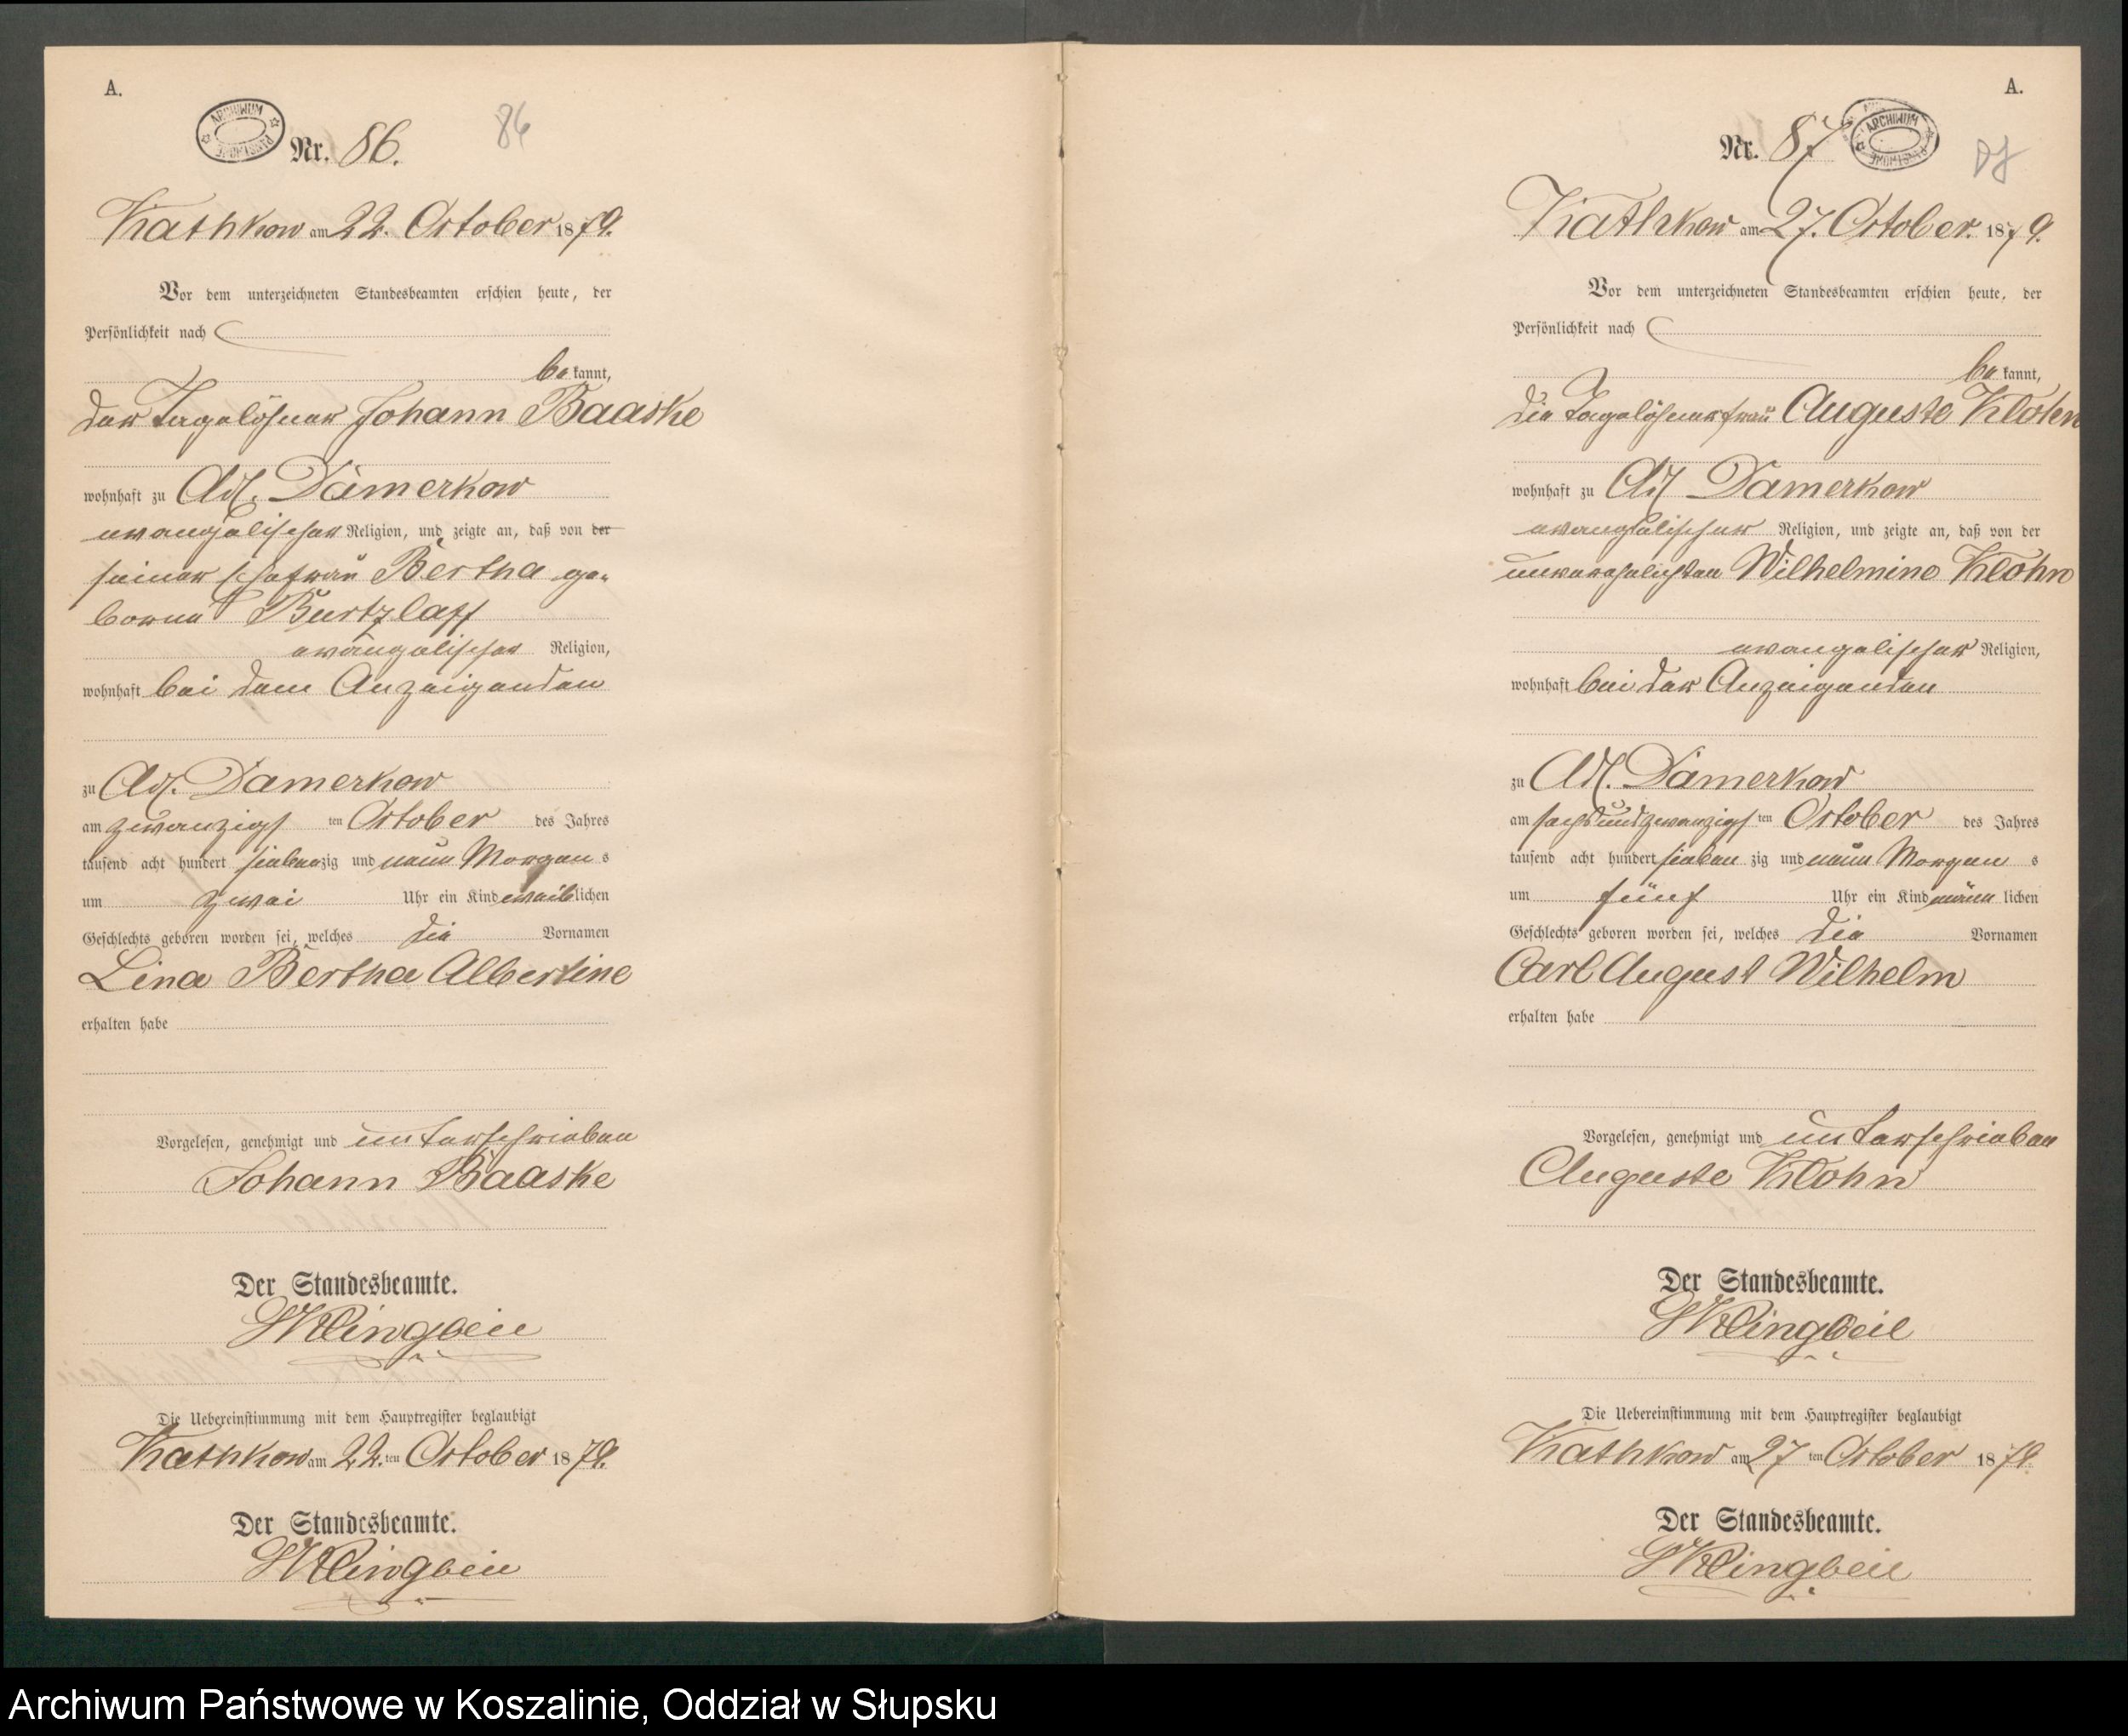 A.
ARCHIWUM PAŃSTWOWE
Nr. 86.
86
Kathkow am 22. October 1879.
Vor dem unterzeichneten Standesbeamten erschien heute, der
Persönlichkeit nach
be kannt,
der Tagelöhner Johann Baaske
wohnhaft zu Adl. Damerkow
evangelischer Religion, und zeigte an, daß von der
seiner Ehefrau Bertha ge-
borne Burtzlaff
evangelischer Religion,
wohnhaft bei dem Anzeigenden
zu Adl. Damerkow
am zwanzigs ten October des Jahres
tausend acht hundert sieben zig und neun Morgen s
um zwei Uhr ein Kind weib lichen
Geschlechts geboren worden sei, welches die Vornamen
Lina Bertha Albertine
erhalten habe
Vorgelesen, genehmigt und unterschrieben
Johann Baaske
Der Standesbeamte.
Klingbeil
Die Uebereinstimmung mit dem Hauptregister beglaubigt
Kathkow am 22. ten October 1879.
Der Standesbeamte.
Klingbeil
A.
Nr. 87
ARCHIWUM PAŃSTWOWE
Kathkow am 27. October 1879.
Vor dem unterzeichneten Standesbeamten erschien heute, der
Persönlichkeit nach
be kannt,
die Tagelöhnerfrau Auguste Klohn
wohnhaft zu Adl Damerkow
evangelischer Religion, und zeigte an, daß von der
unverehelichten Wilhelmine Klohn
evangelischer Religion,
wohnhaft bei der Anzeigenden
zu Adl. Damerkow
am sechsundzwanzigs ten October des Jahres
tausend acht hundert sieben zig und neun Morgen s
um fünf Uhr ein Kind männ lichen
Geschlechts geboren worden sei, welches die Vornamen
Carl August Wilhelm
erhalten habe
Vorgelesen, genehmigt und unterschrieben
Auguste Klohn
Der Standesbeamte.
Klingbeil
Die Uebereinstimmung mit dem Hauptregister beglaubigt
Kathkow am 27 ten October 1879.
Der Standesbeamte.
Klingbeil
Archiwum Państwowe w Koszalinie, Oddział w Słupsku